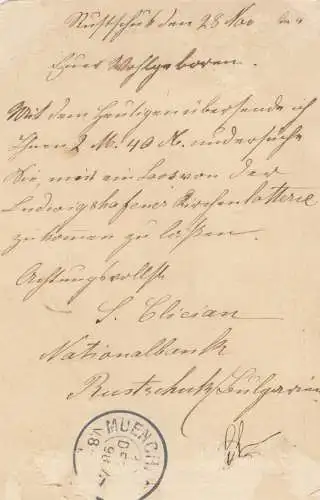 Rustschuk den 28 Nov
Euer Wohlgeboren.
Mit dem Heutigen übersende ich
Ihnen 2 M. 40 ₰. und ersuche
Sie, mir ein Los von der
Ludwigshafener Kirchenlotterie
zu kommen zu laßen.
Achtungsvollst
S. Clician
Nationalbank
Rustschuk Bulgarien
MUENCH